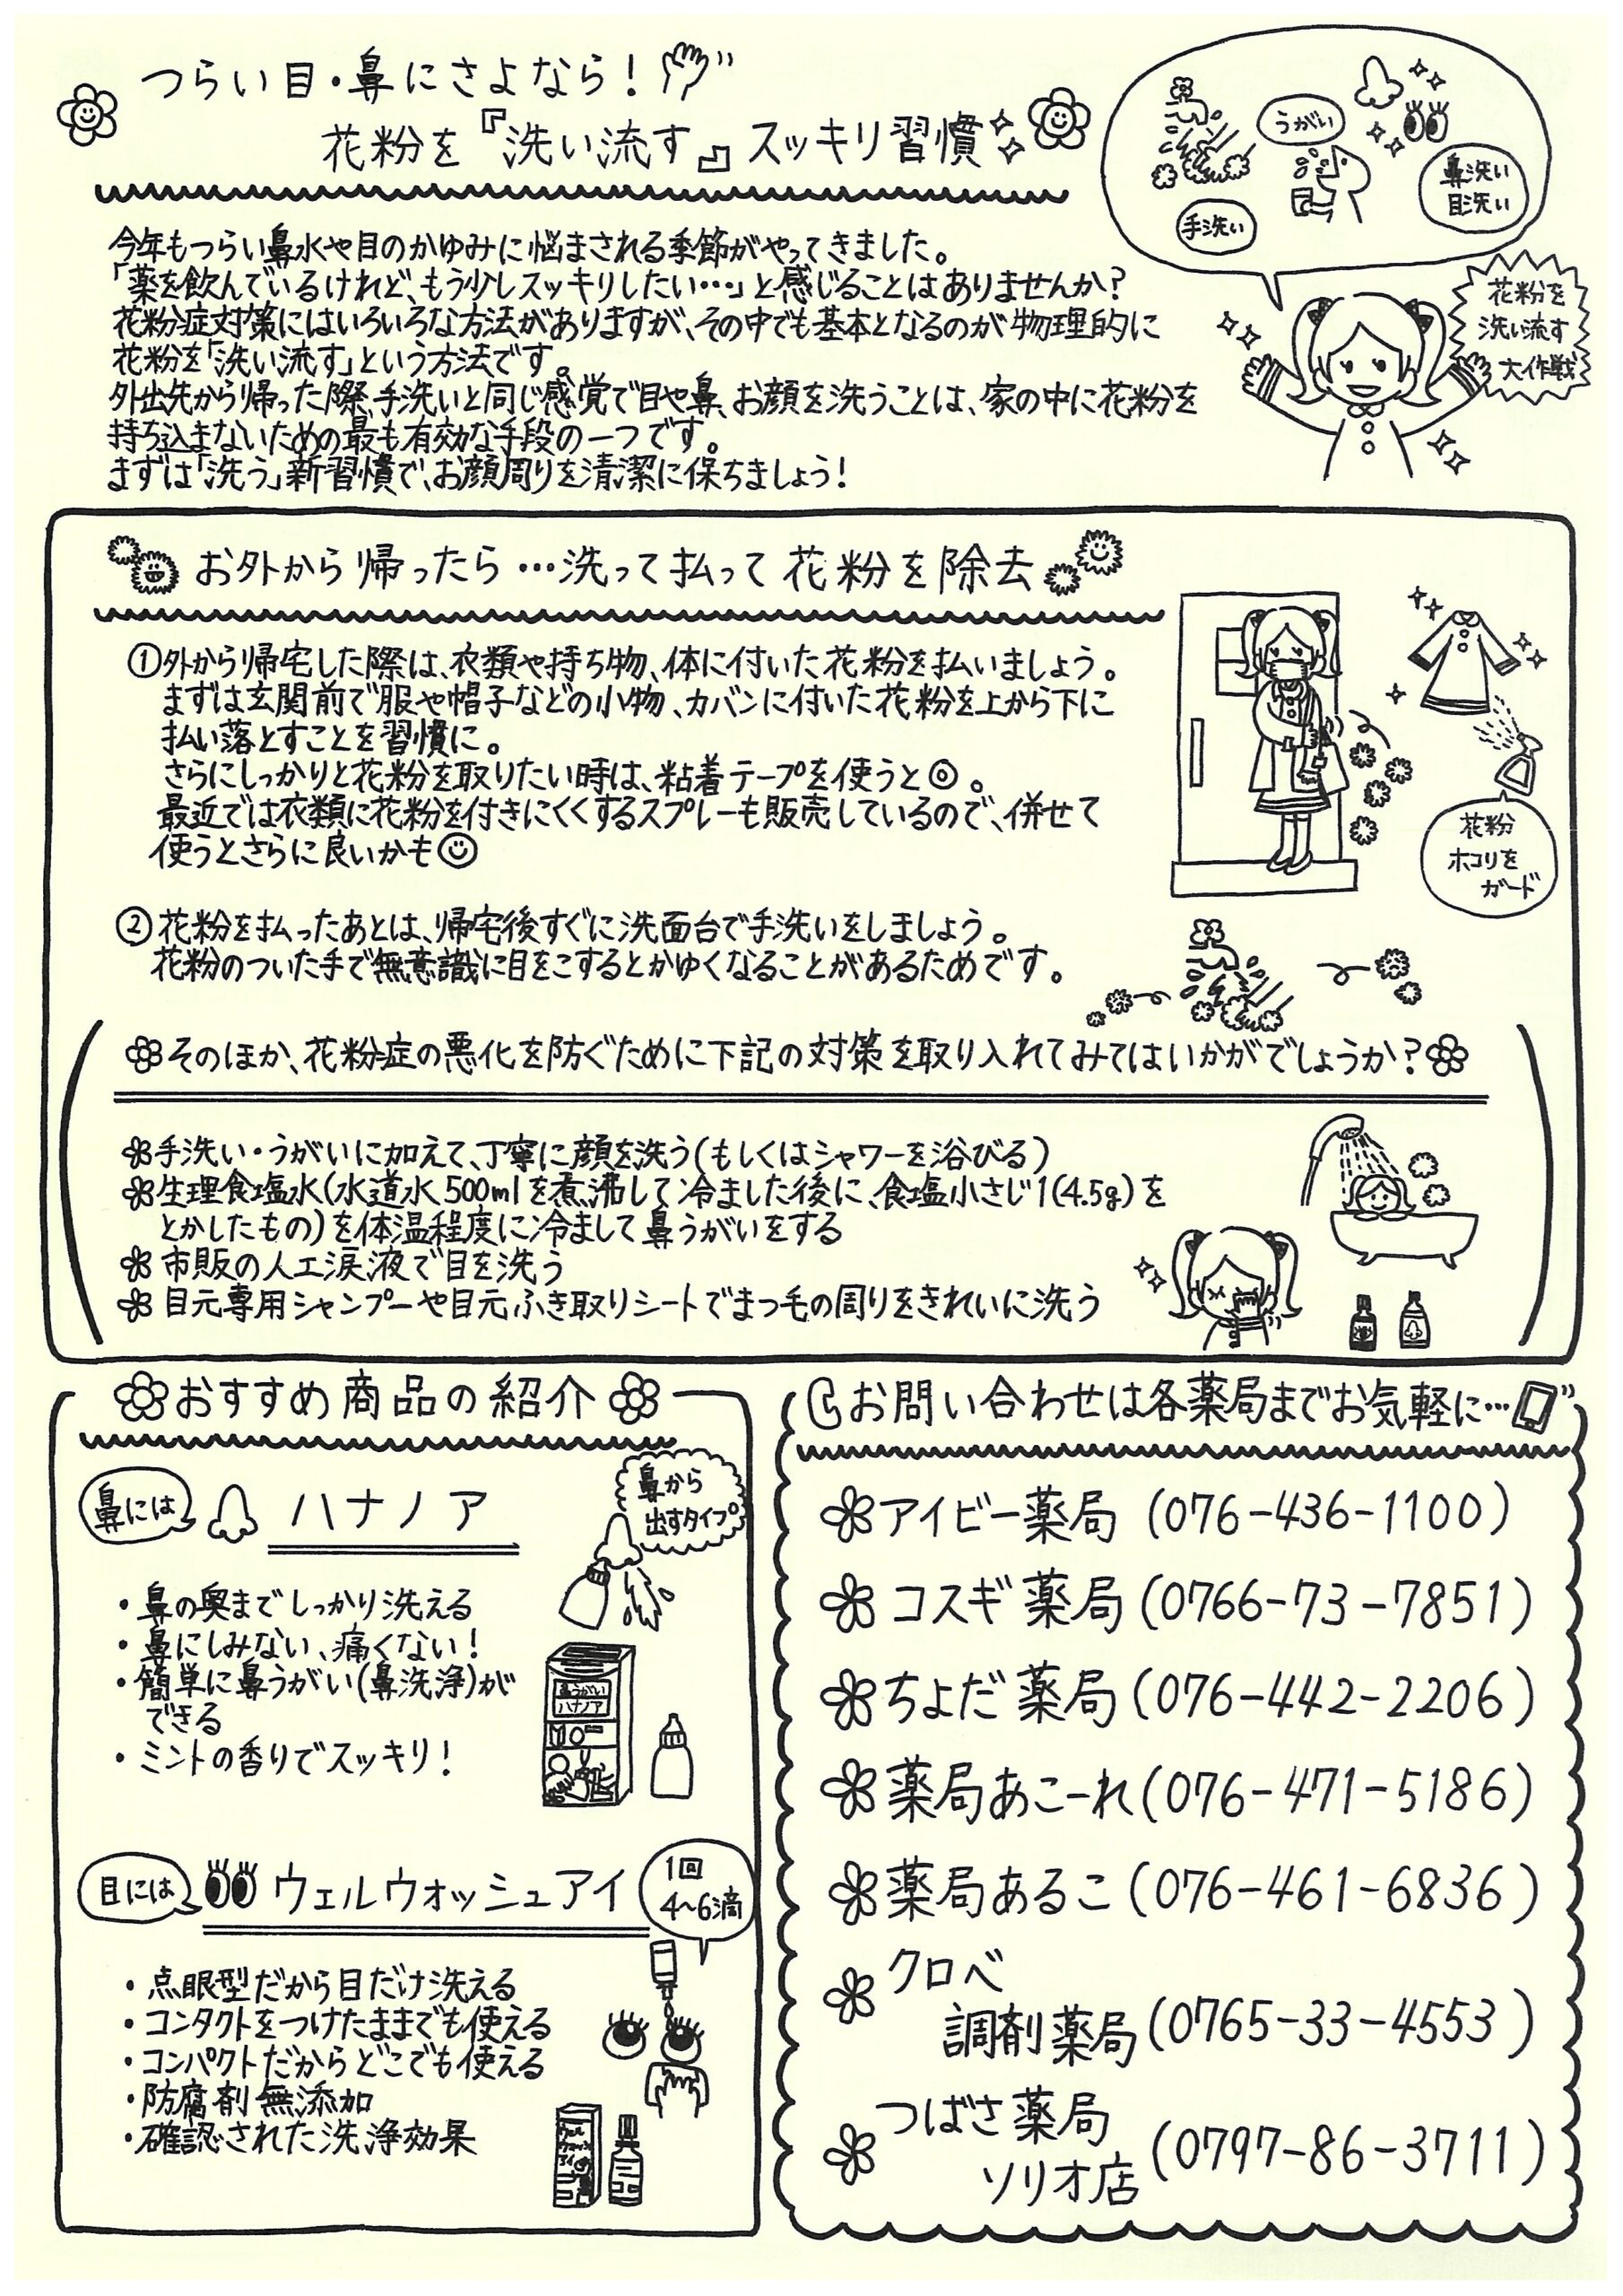 つらい目・鼻にさよなら！
花粉を『洗い流す』スッキリ習慣
うがい
鼻洗い
目洗い
手洗い
花粉を
洗い流す
大作戦
今年もつらい鼻水や目のかゆみに悩まされる季節がやってきました。
「薬を飲んでいるけれど、もう少しスッキリしたい…」と感じることはありませんか？
花粉症対策にはいろいろな方法がありますが、その中でも基本となるのが物理的に
花粉を「洗い流す」という方法です。
外出先から帰った際、手洗いと同じ感覚で目や鼻、お顔を洗うことは、家の中に花粉を
持ち込まないための最も有効な手段の一つです。
まずは「洗う」新習慣で、お顔周りを清潔に保ちましょう！
お外から帰ったら…洗って払って花粉を除去
①外から帰宅した際は、衣類や持ち物、体に付いた花粉を払いましょう。
まずは玄関前で服や帽子などの小物、カバンに付いた花粉を上から下に
払い落とすことを習慣に。
さらにしっかりと花粉を取りたい時は、粘着テープを使うと◎。
最近では衣類に花粉を付きにくくするスプレーも販売しているので、併せて
使うとさらに良いかも☺
花粉
ホコリを
ガード
②花粉を払ったあとは、帰宅後すぐに洗面台で手洗いをしましょう。
花粉のついた手で無意識に目をこするとかゆくなることがあるためです。
そのほか、花粉症の悪化を防ぐために下記の対策を取り入れてみてはいかがでしょうか？
手洗い・うがいに加えて、丁寧に顔を洗う（もしくはシャワーを浴びる）
生理食塩水（水道水500mlを煮沸して冷ました後に、食塩小さじ1(4.5g)を
とかしたもの）を体温程度に冷まして鼻うがいをする
市販の人工涙液で目を洗う
目元専用シャンプーや目元ふき取りシートでまつ毛の周りをきれいに洗う
おすすめ商品の紹介
鼻には
ハナノア
鼻から
出すタイプ
・鼻の奥までしっかり洗える
・鼻にしみない、痛くない！
・簡単に鼻うがい（鼻洗浄）が
できる
・ミントの香りでスッキリ！
鼻うがい
ハナノア
目には
ウェルウォッシュアイ
1回
4〜6滴
・点眼型だから目だけ洗える
・コンタクトをつけたままでも使える
・コンパクトだからどこでも使える
・防腐剤無添加
・確認された洗浄効果
お問い合わせは各薬局までお気軽に…
アイビー薬局（076-436-1100）
コスギ薬局（0766-73-7851）
ちよだ薬局（076-442-2206）
薬局あこーれ（076-471-5186）
薬局あるこ（076-461-6836）
クロベ
調剤薬局（0765-33-4553）
つばさ薬局
ソリオ店（0797-86-3711）